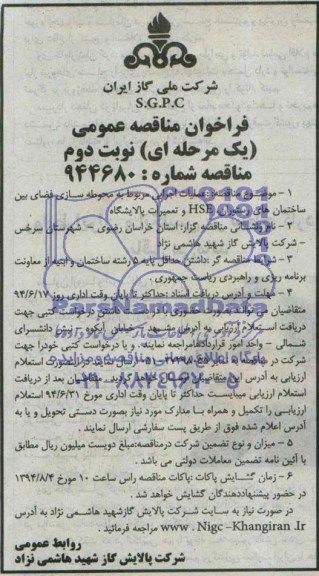 شرکت ملی گاز ایران
S.G.P.C
فراخوان مناقصه عمومی
(یک مرحله ای) نوبت دوم
مناقصه شماره : ۹۴۴۶۸۰
۱ – موضوع مناقصه: عملیات اجرایی مربوط به محوطه سازی فضای بین
ساختمان های رستوران، HSE و تعمیرات پالایشگاه
۲ – نام ونشانی مناقصه گزار: استان خراسان رضوی – شهرستان سرخس
– شرکت پالایش گاز شهید هاشمی نژاد
۳ – شرایط مناقصه گر :داشتن حداقل پایه ۵ رشته ساختمان و ابنیه از معاونت
برنامه ریزی و راهبردی ریاست جمهوری
۴ – مهلت و آدرس دریافت اسناد :حداکثر تا پایان وقت اداری روز ۹۴/۶/۱۷
متقاضیان می توانند بصورت حضوری با در دست داشتن درخواست کتبی جهت
دریافت استعلام ارزیابی به آدرس مشهد – خیابان آبکوه – نبش دانشسرای
شمالی – واحد امور قراردادها مراجعه نمایند. و یا درخواست کتبی خود را جهت
شرکت در مناقصه به شماره ارسال نمایند تا بصورت استعلام
ارزیابی به آدرس متقاضیان ارسال گردد. متقاضیان بعد از دریافت
استعلام ارزیابی میبایست حداکثر تا پایان وقت اداری مورخ ۹۴/۶/۳۱ استعلام
ارزیابی را تکمیل و همراه با مدارک مورد نیاز بصورت دستی تحویل و یا به
آدرس اعلام شده فوق از طریق پست سفارشی ارسال نمایند .
۵ – میزان و نوع تضمین شرکت درمناقصه:مبلغ دویست میلیون ریال مطابق
با آئین نامه تضمین معاملات دولتی می باشد .
۶ – زمان گشایش پاکات :پاکات مناقصه راس ساعت ۱۰ مورخ ۱۳۹۴/۸/۴
در حضور پیشنهاددهندگان گشایش خواهد شد .
در صورت نیاز به سایت شرکت پالایش گازشهید هاشمی نژاد به آدرس
www . Nigc –Khangiran .Ir مراجعه فرمائید .
روابط عمومی
شرکت پالایش گاز شهید هاشمی نژاد
ParsNamadData
پایگاه اطلاع رسانی مناقصه و مزایده
۰۲۱-۸۸۳۴۹۶۷۰-۵